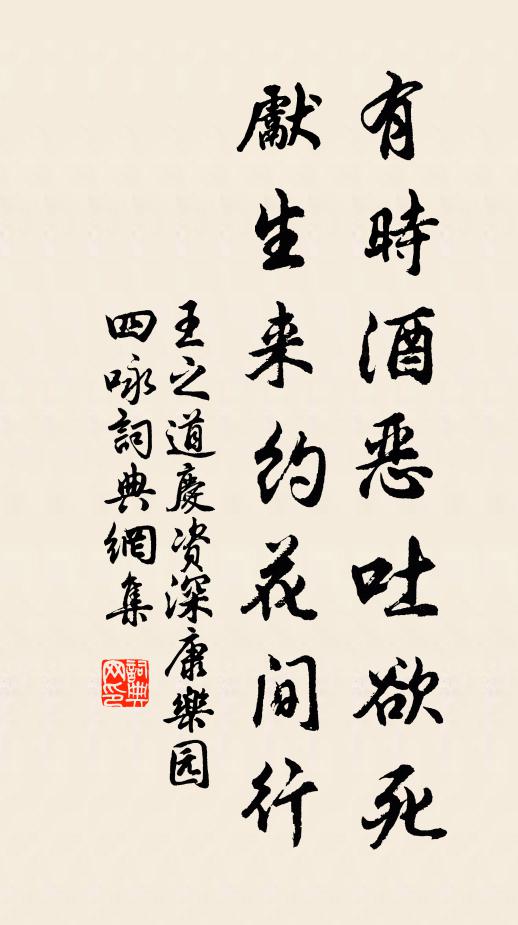 有時酒恶吐欲死
獻生来约花间行
王之道慶资深康樂园
四咏詞典網集
詞典网印